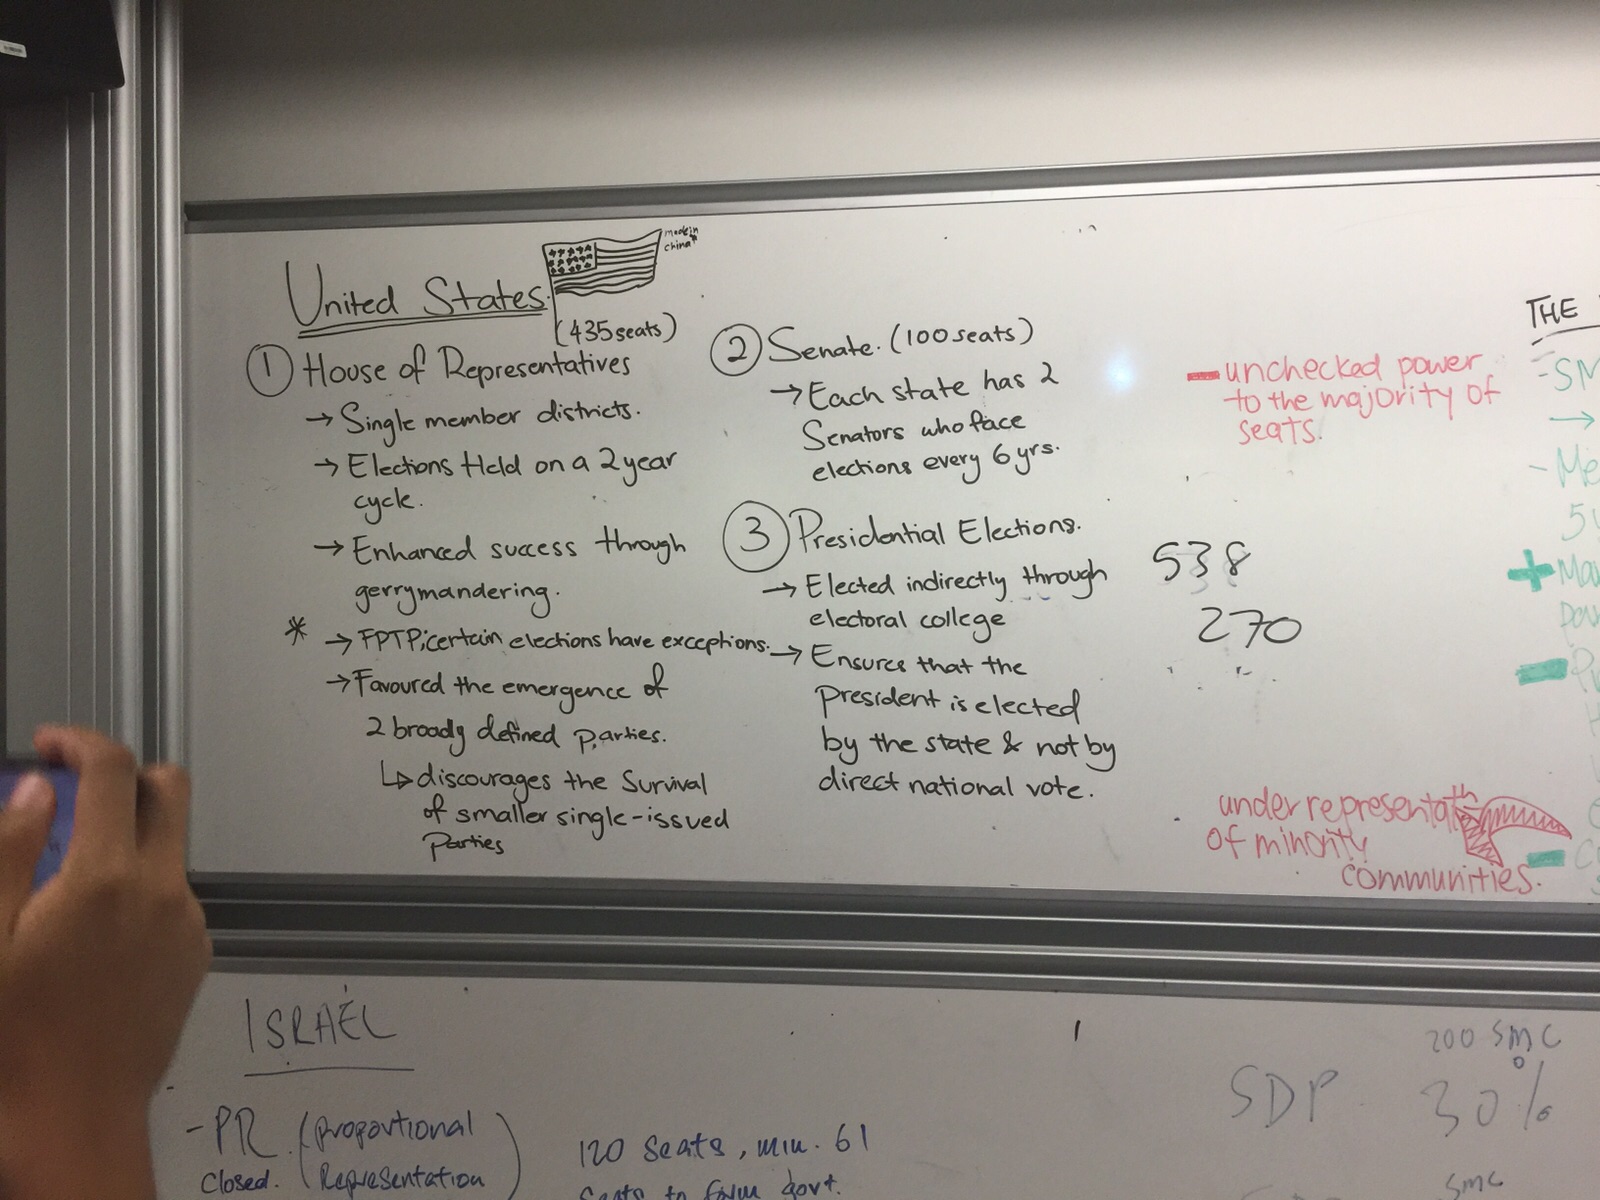 made in
china
United States
(435 seats)
① House of Representatives
→ Single member districts.
→ Elections Held on a 2 year
cycle.
→ Enhanced success through
gerrymandering.
* → FPTP; certain elections have exceptions.
→ Favoured the emergence of
2 broady defined parties.
↳ discourages the survival
of smaller single-issued
Parties
② Senate. (100 seats)
→ Each state has 2
Senators who face
elections every 6 yrs.
③ Presidential Elections.
→ Elected indirectly through
electoral college
→ Ensures that the
president is elected
by the state & not by
direct national vote.
538
270
- unchecked power
to the majority of
seats.
under representatn
of minority
communities.
THE
- SM
→
- Me
+
-
-
ISRAEL
- PR (Proportional
Closed. Representation)
120 seats, min. 61
seats to form govt.
200 SMC
SDP 30%
SMC